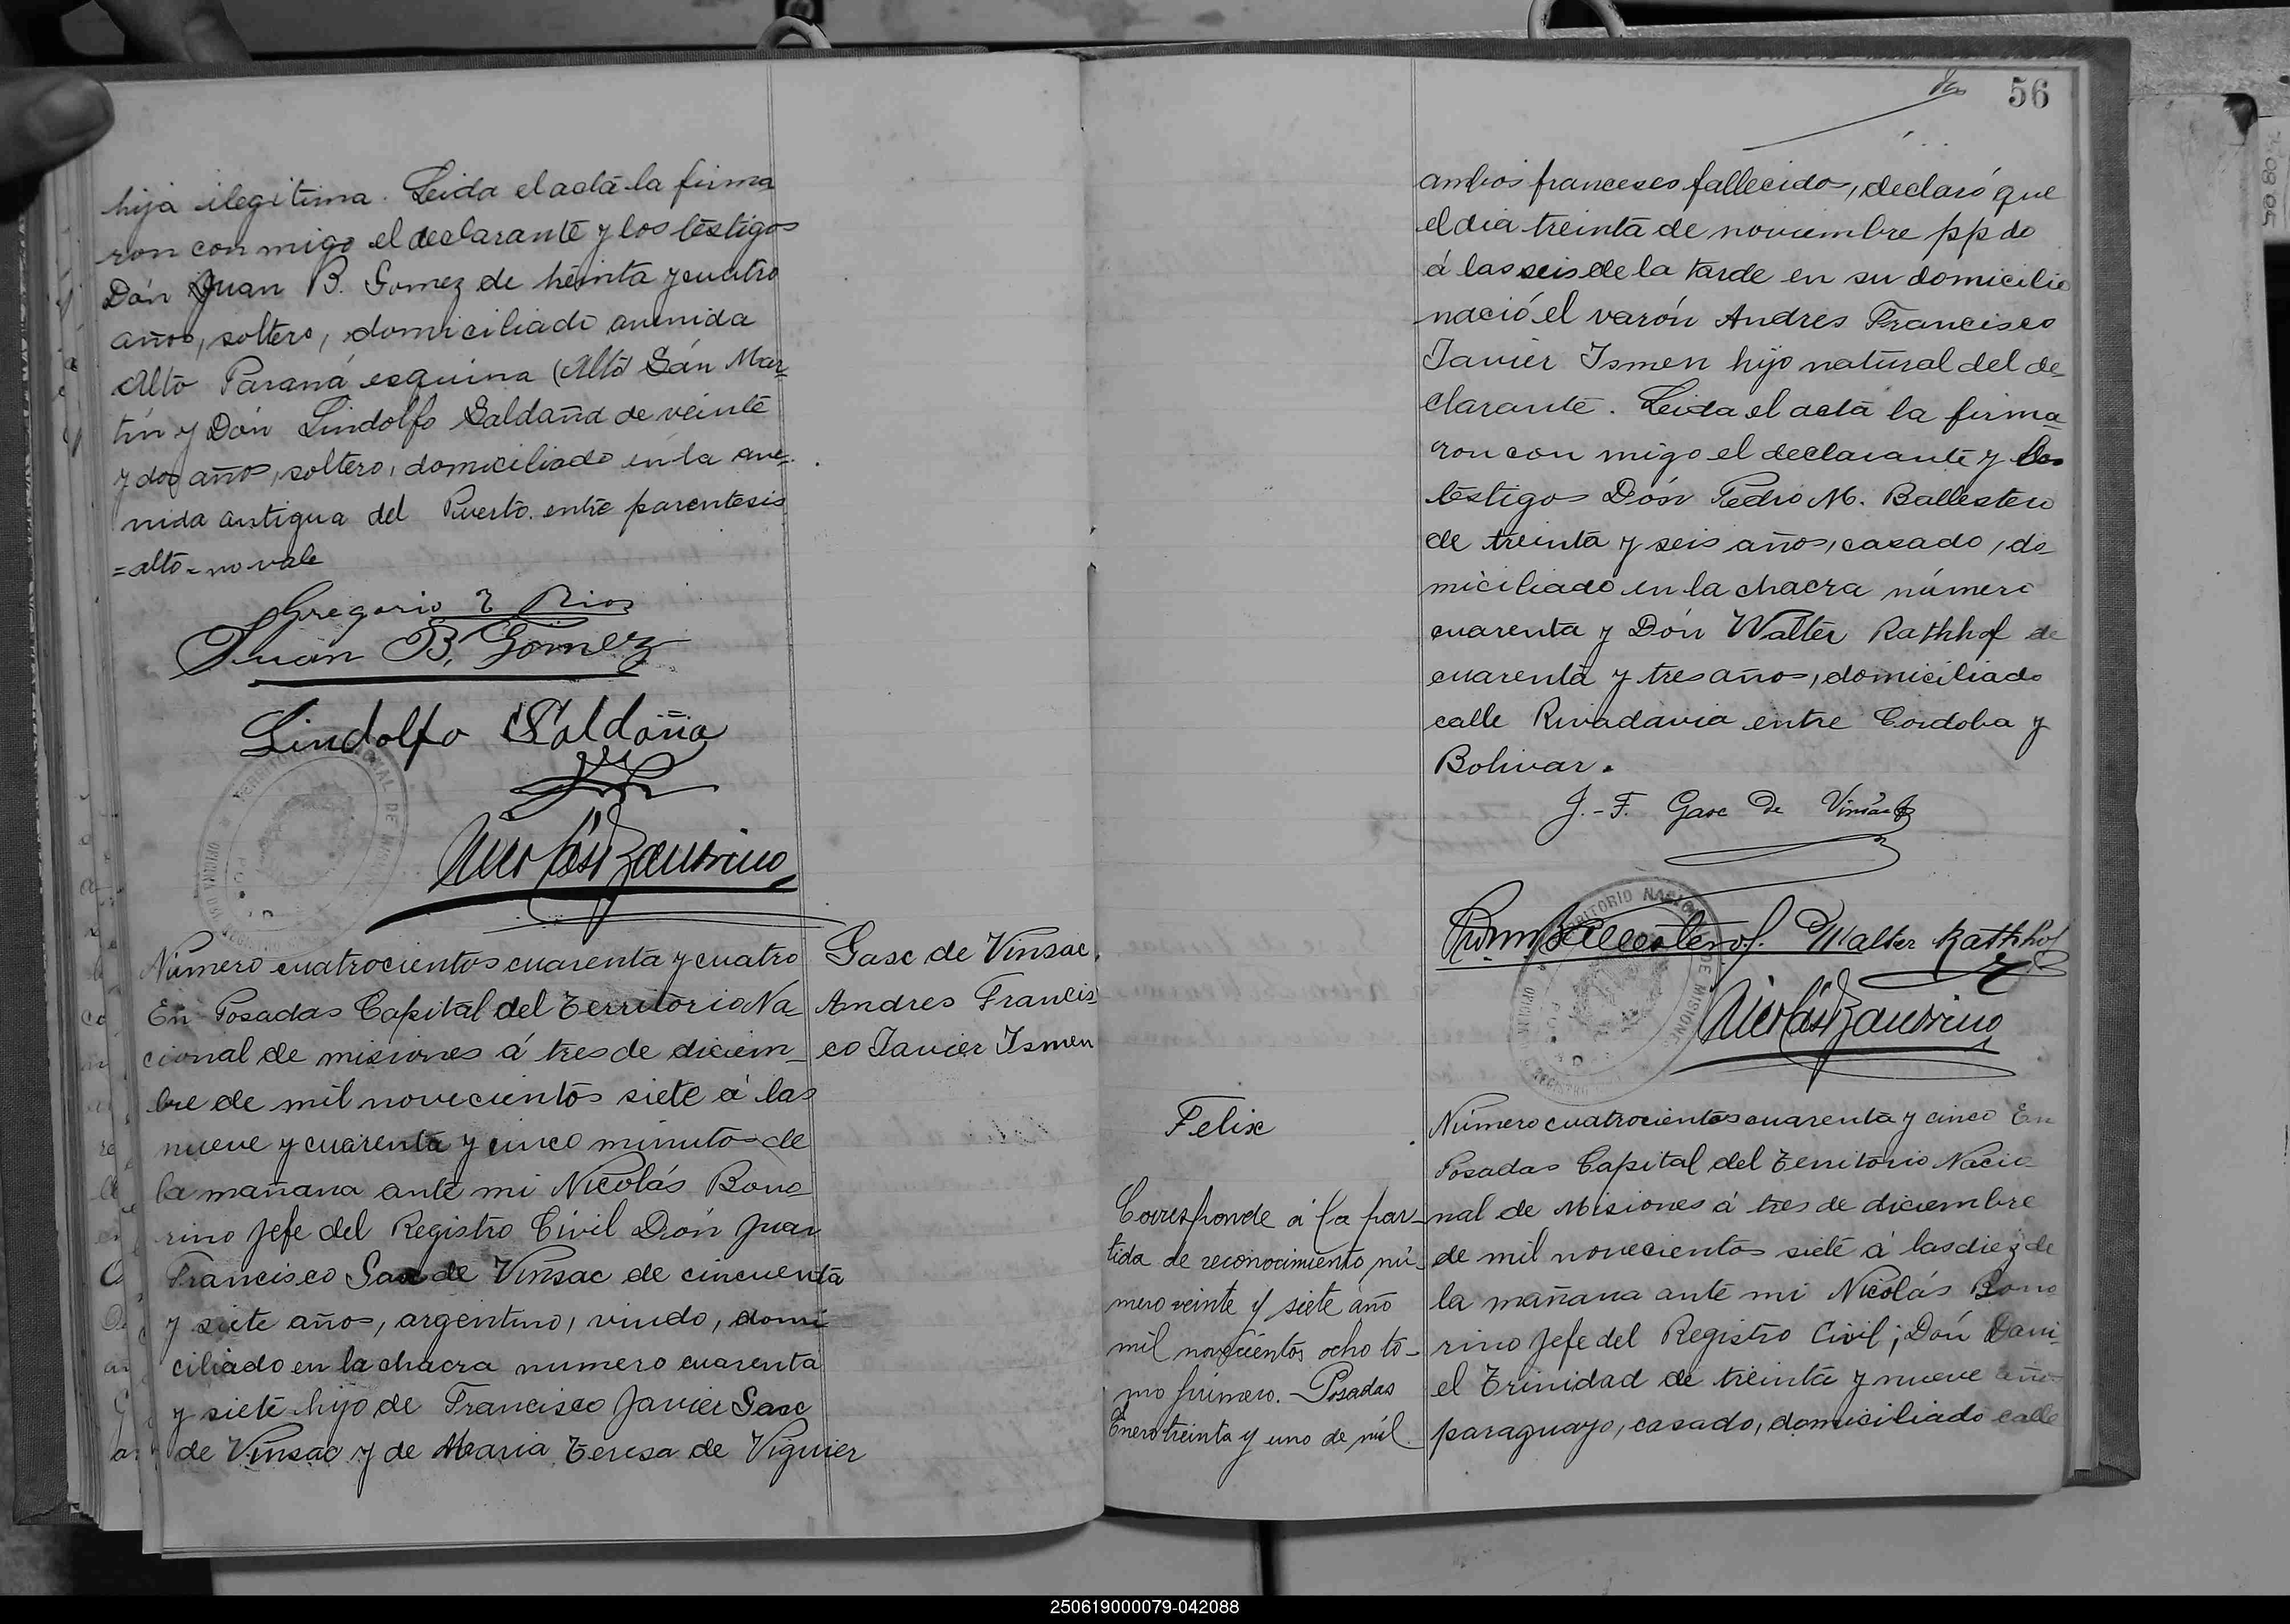 hija ilegitima. Leida el acta la firma
ron con migo el declarante y los testigos
Dón Juan B. Gomez de treinta y cuatro
años, soltero, domiciliado avenida
Alto Paraná esquina (Alto San Mar-
tín y Dón Lindolfo Saldaña de veinte
y dos años, soltero, domiciliado en la ave-
nida antigua del Puerto. entre parentesis
=alto= no vale
Gregorio Rios
Juan B. Gomez
Lindolfo Saldaña
Número cuatrocientos cuarenta y cuatro
En Posadas Capital del Territorio Na-
cional de misiones á tres de diciem-
bre de mil novecientos siete á las
nueve y cuarenta y cinco minutos de
la mañana ante mi Nicolás Bono
rino Jefe del Registro Civil Dón Juan
Francisco Gasc de Vinsac de cincuenta
y siete años, argentino, viudo, domi
ciliado en la chacra numero cuarenta
y siete hijo de Francisco Javier Gasc
de Vinsac y de Maria Teresa de Viguier
Gasc de Vinsac,
Andres Francis
co Javier Ismen
56
ambos franceses fallecidos, declaró que
el dia treinta de noviembre ppdo
á las seis de la tarde en su domicilio
nació el varón Andres Francisco
Javier Ismen hijo natural del de-
clarante. Leida el acta la firma-
ron con migo el declarante y los
testigos Dón Pedro M. Ballestero
de treinta y seis años, casado, do
miciliado en la chacra número
cuarenta y Dón Walter Rathhof de
cuarenta y tres años, domiciliado
calle Rivadavia entre Cordoba y
Bolivar.
J.-F. Gasc De Vinsac
Walter Rathhof
TERRITORIO NACIONAL DE MISIONES
Felix
Corresponde á la par-
tida de reconocimiento nú-
mero veinte y siete año
mil novecientos ocho to-
mo primero. Posadas
Enero treinta y uno de mil
Número cuatrocientos cuarenta y cinco En
Posadas Capital del Territorio Nacio
nal de Misiones á tres de diciembre
de mil novecientos siete á las diez de
la mañana ante mi Nicolás Bono
rino Jefe del Registro Civil; Dón Dani-
el Trinidad de treinta y nueve años
paraguayo, casado, domiciliado calle
250619000079-042088